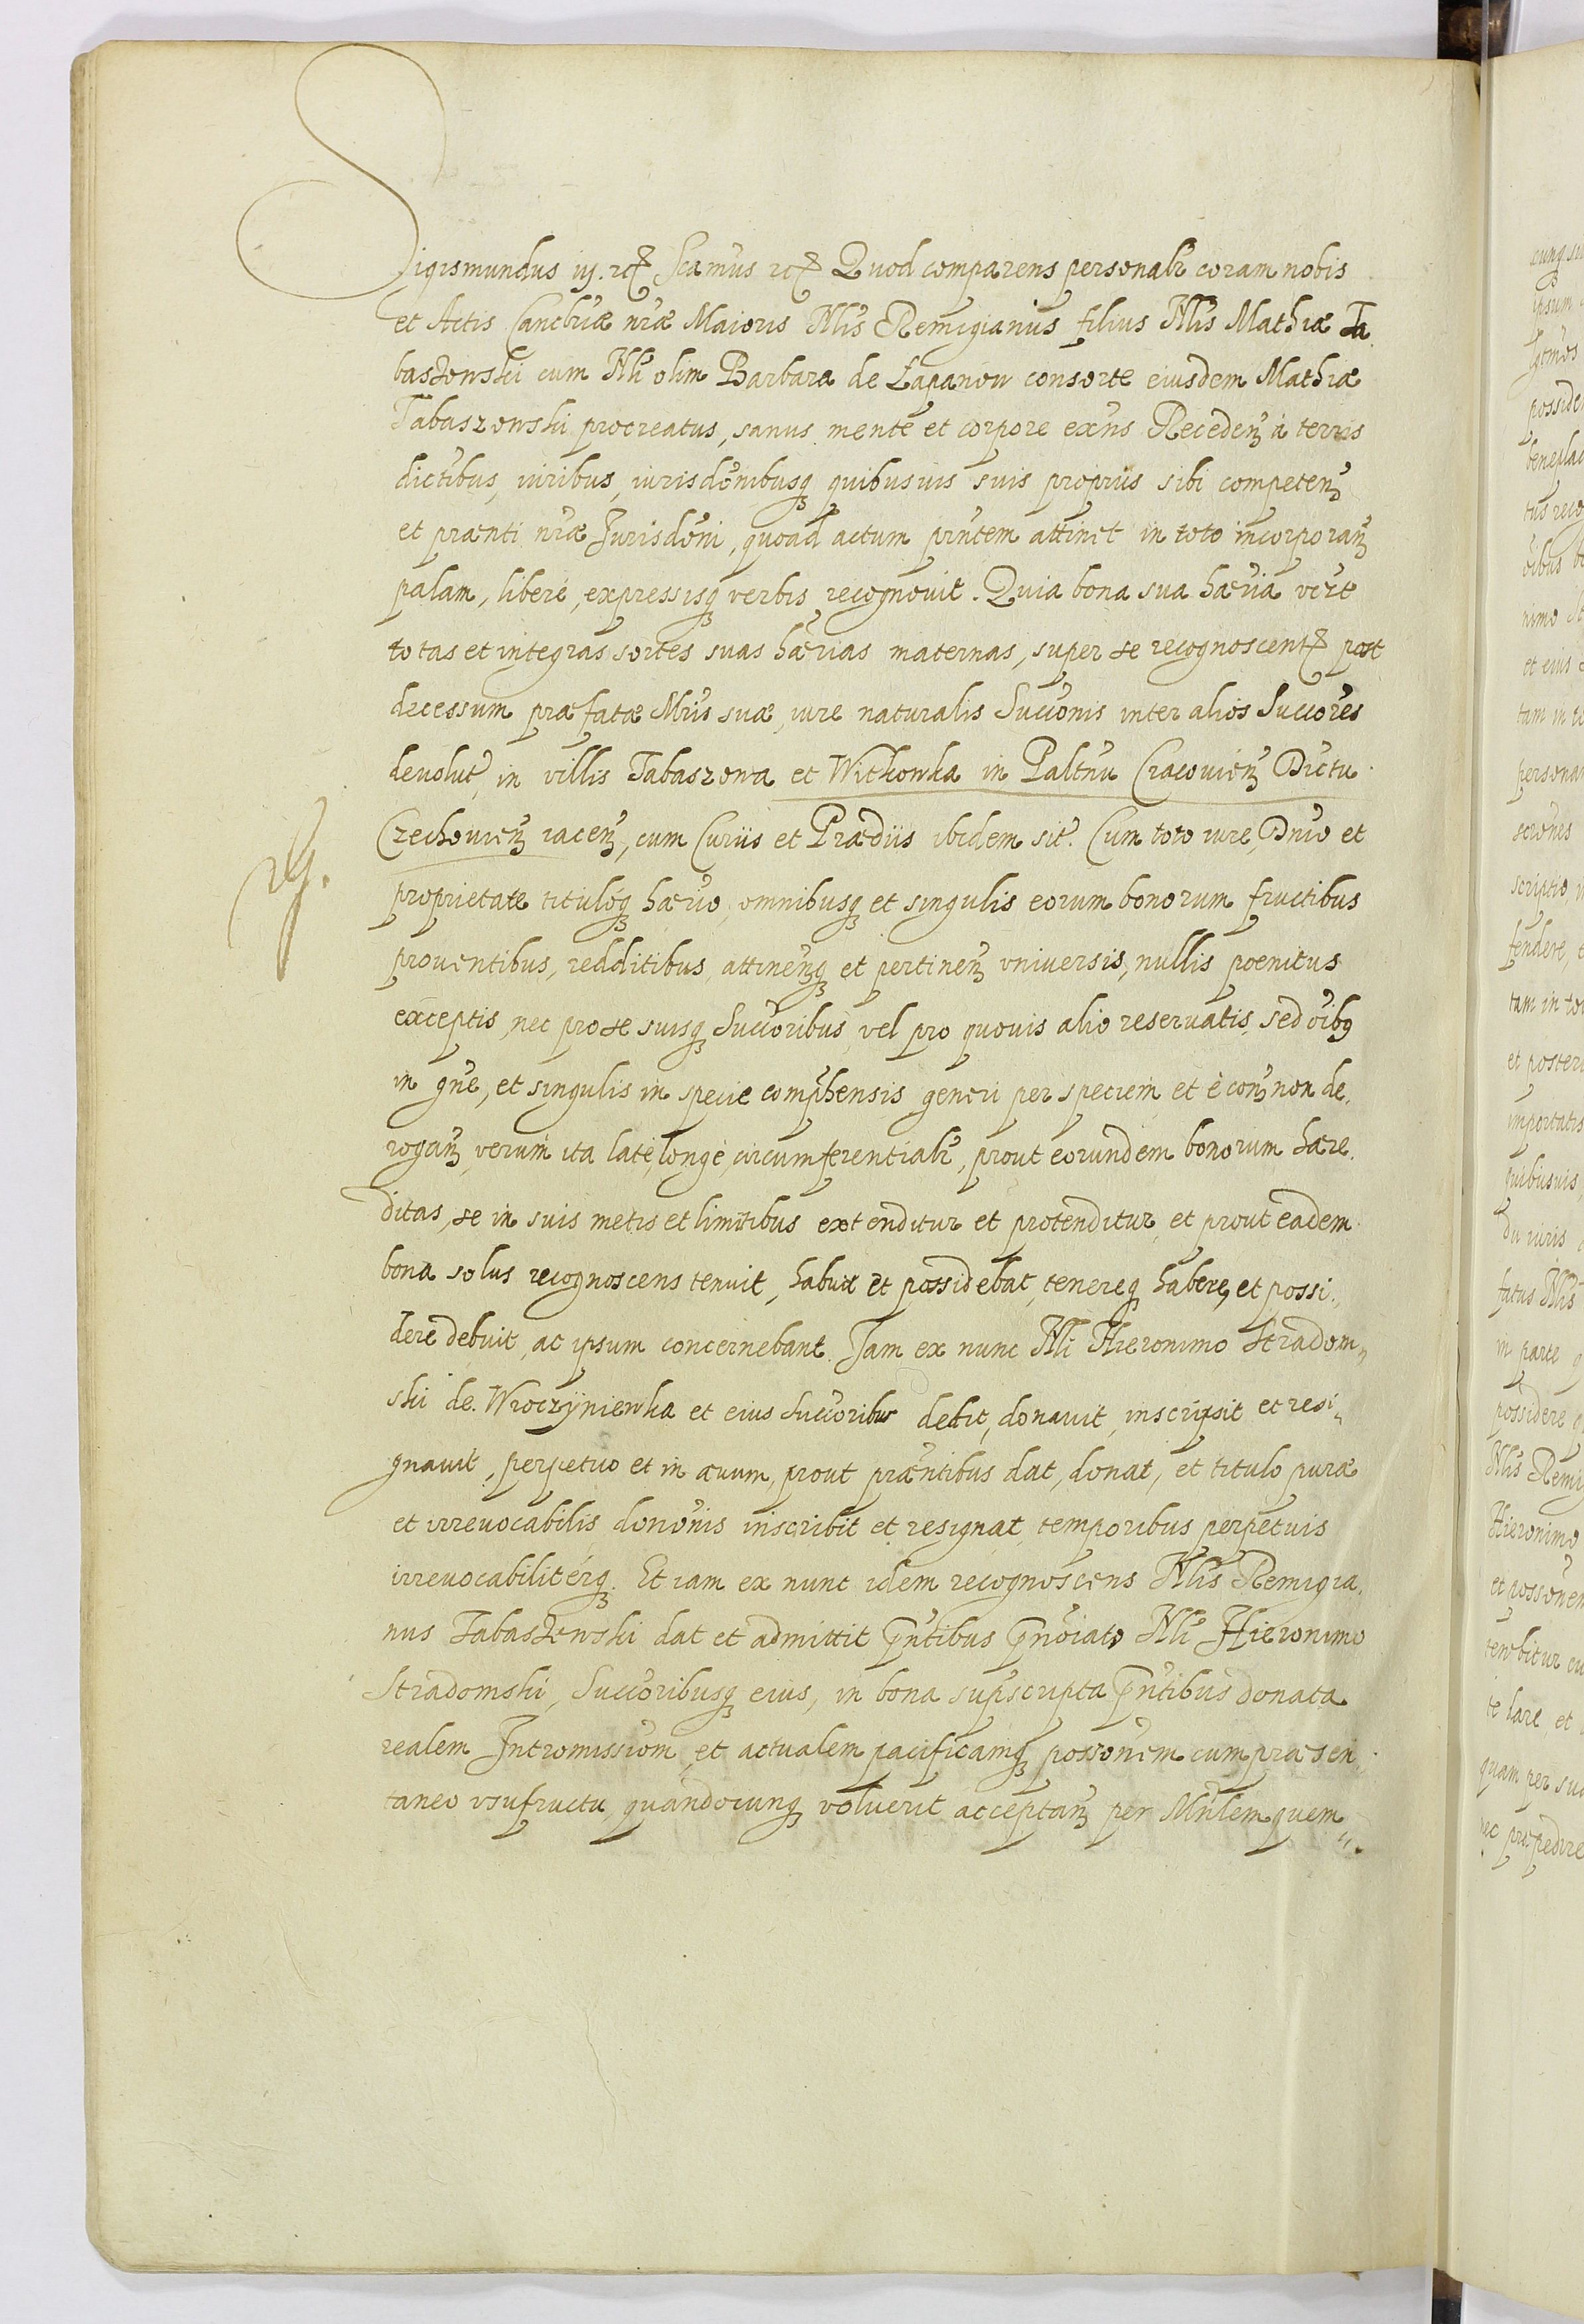 Sigismundus iij. etc̃ Scamus etc̃ Quod comparens personalr̃ coram nobis
et Actis Cancẽriæ nr̃æ Maioris Nlis Remigianus filius Nlis Mathiæ Ta
baszowski cum Nli olim Barbara de Łapanow consorte eiusdem Mathiæ
Tabaszowski procreatus, sanus mente et corpore exñs Recedeñ à terris
dictibus, iuribus, iurisdõnibusq̃ quibusuis suis proprijs sibi competeñ
et præñti nr̃æ Jurisdõni, quoad actum pñtem attinet in toto incorporañ
palam, liberè, expressisq̃ verbis recognouit. Quia bona sua hæria vẽre
totas et integras sortes suas hærias maternas, super se recognoscentẽ post
decessum præfatæ Mr̃is suæ, iure naturalis Succõnis inter alios Succores
deuolut̃, in villis Tabaszowa et Witkowka in Paltñu Cracouieñ Dictu
Czechouieñ iaceñ, cum Curiis et Prædiis ibidem sit̃. Cum toto iure, Dnĩo et
proprietate titulóq̃ hærio, omnibusq̃ et singulis eorum bonorum fructibus
prouentibus, redditibus, attineñq̃ et pertineñ vniversis, nullis poenitus
exceptis, nec pro se suisq̃ Succoribus, vel pro quouis alio reservatis, sed oĩbq
in gñe, et singulis in specie comp̃hensis generi per speciem et è coñ non de
rogañ, verum ita latè, longè, circumferentialr̃, prout eorundem bonorum hære
ditas, se in suis metis et limitibus extenditur et protenditur, et prout eadem
bona solus recognoscens tenuit, habuit et possidebat, tenereq̃ habere, et possi
dere debuit, ac ipsum concernebant. Jam ex nunc Nli Hieronimo Stradom
ski de Wroczÿniewka et eius Succoribus dedit, donauit, inscripsit et resi
gnauit, perpetuo et in æuum, prout præñtibus dat, donat, et titulo puræ
et irreuocabilis donõnis inscribit et resignat temporibus perpetuis
irreuocabilitérq̃. Et iam ex nunc idem recognoscens Nlis Remigia
nus Tabaszewski dat et admittit p̃ntibus p̃nõiato Nli Hieronimo
Stradomski, Succoribusq̃ eius, in bona supscripta p̃ntibus donata
realem Intromissiom̃, et actualem pacificamq̃ possõnem cum præsen
taneo vsufructu, quandocunq̃ voluerit acceptañ per Minlem quem